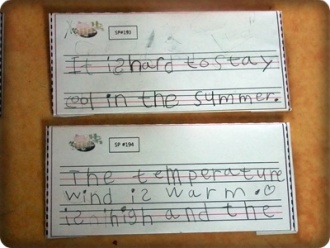 SP#193
It is hard to stay
cool in the summer.
SP #194
The temperature
wind is warm.
is high and the